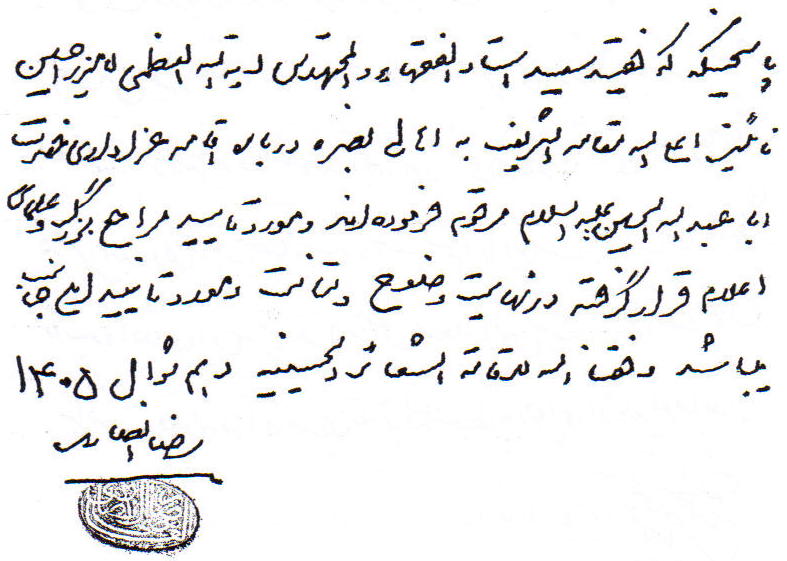 پاسخیکه که فقید سعید استاد الفقهاء و المجتهدین آیة الله العظمی آقا میرزا حسین
نائینی اعلی الله مقامه الشریف به اهالی بصره درباره اقامه عزاداری حضرت
ابا عبد الله الحسین علیه السلام مرقوم فرموده اند و مورد تایید مراجع بزرگ و علمای
اعلام قرار گرفته در نهایت وضوح و متانت و مورد تایید اینجانب
میباشد وفقنا الله لاقامة الشعائر الحسینیه دهم شوال ۱۴۰۵